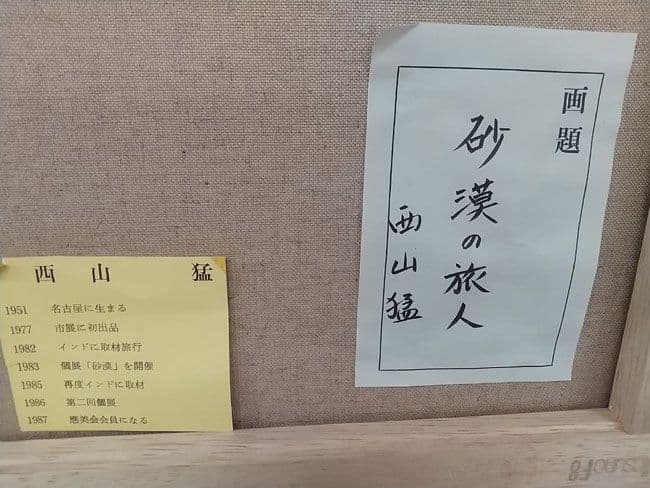 画題
砂漠の旅人
西山猛
西山 猛
1951 名古屋に生まる
1977 市展に初出品
1982 インドに取材旅行
1983 個展「砂漠」を開催
1985 再度インドに取材
1986 第二回個展
1987 應美会会員になる